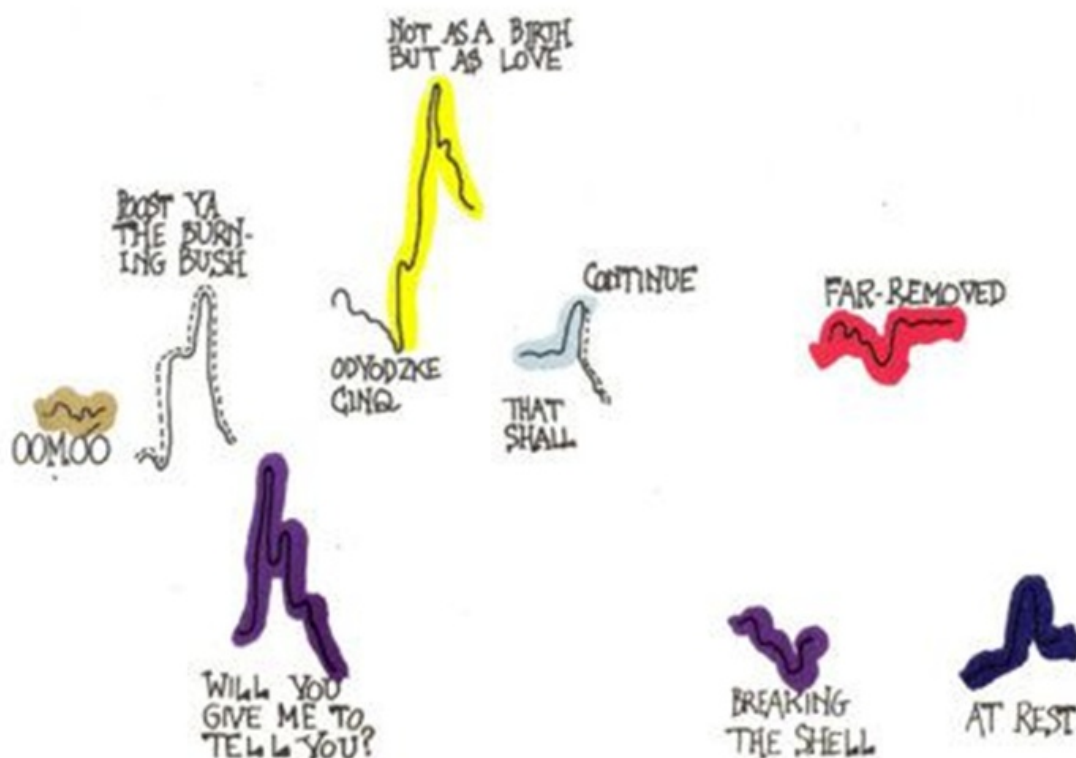 NOT AS A BIRTH
BUT AS LOVE
BOOST YA
THE BURN-
ING BUSH
CONTINUE
FAR-REMOVED
ODYODZKE
CINQ
THAT
SHALL
OOMOO
WILL YOU
GIVE ME TO
TELL YOU?
BREAKING
THE SHELL
AT REST